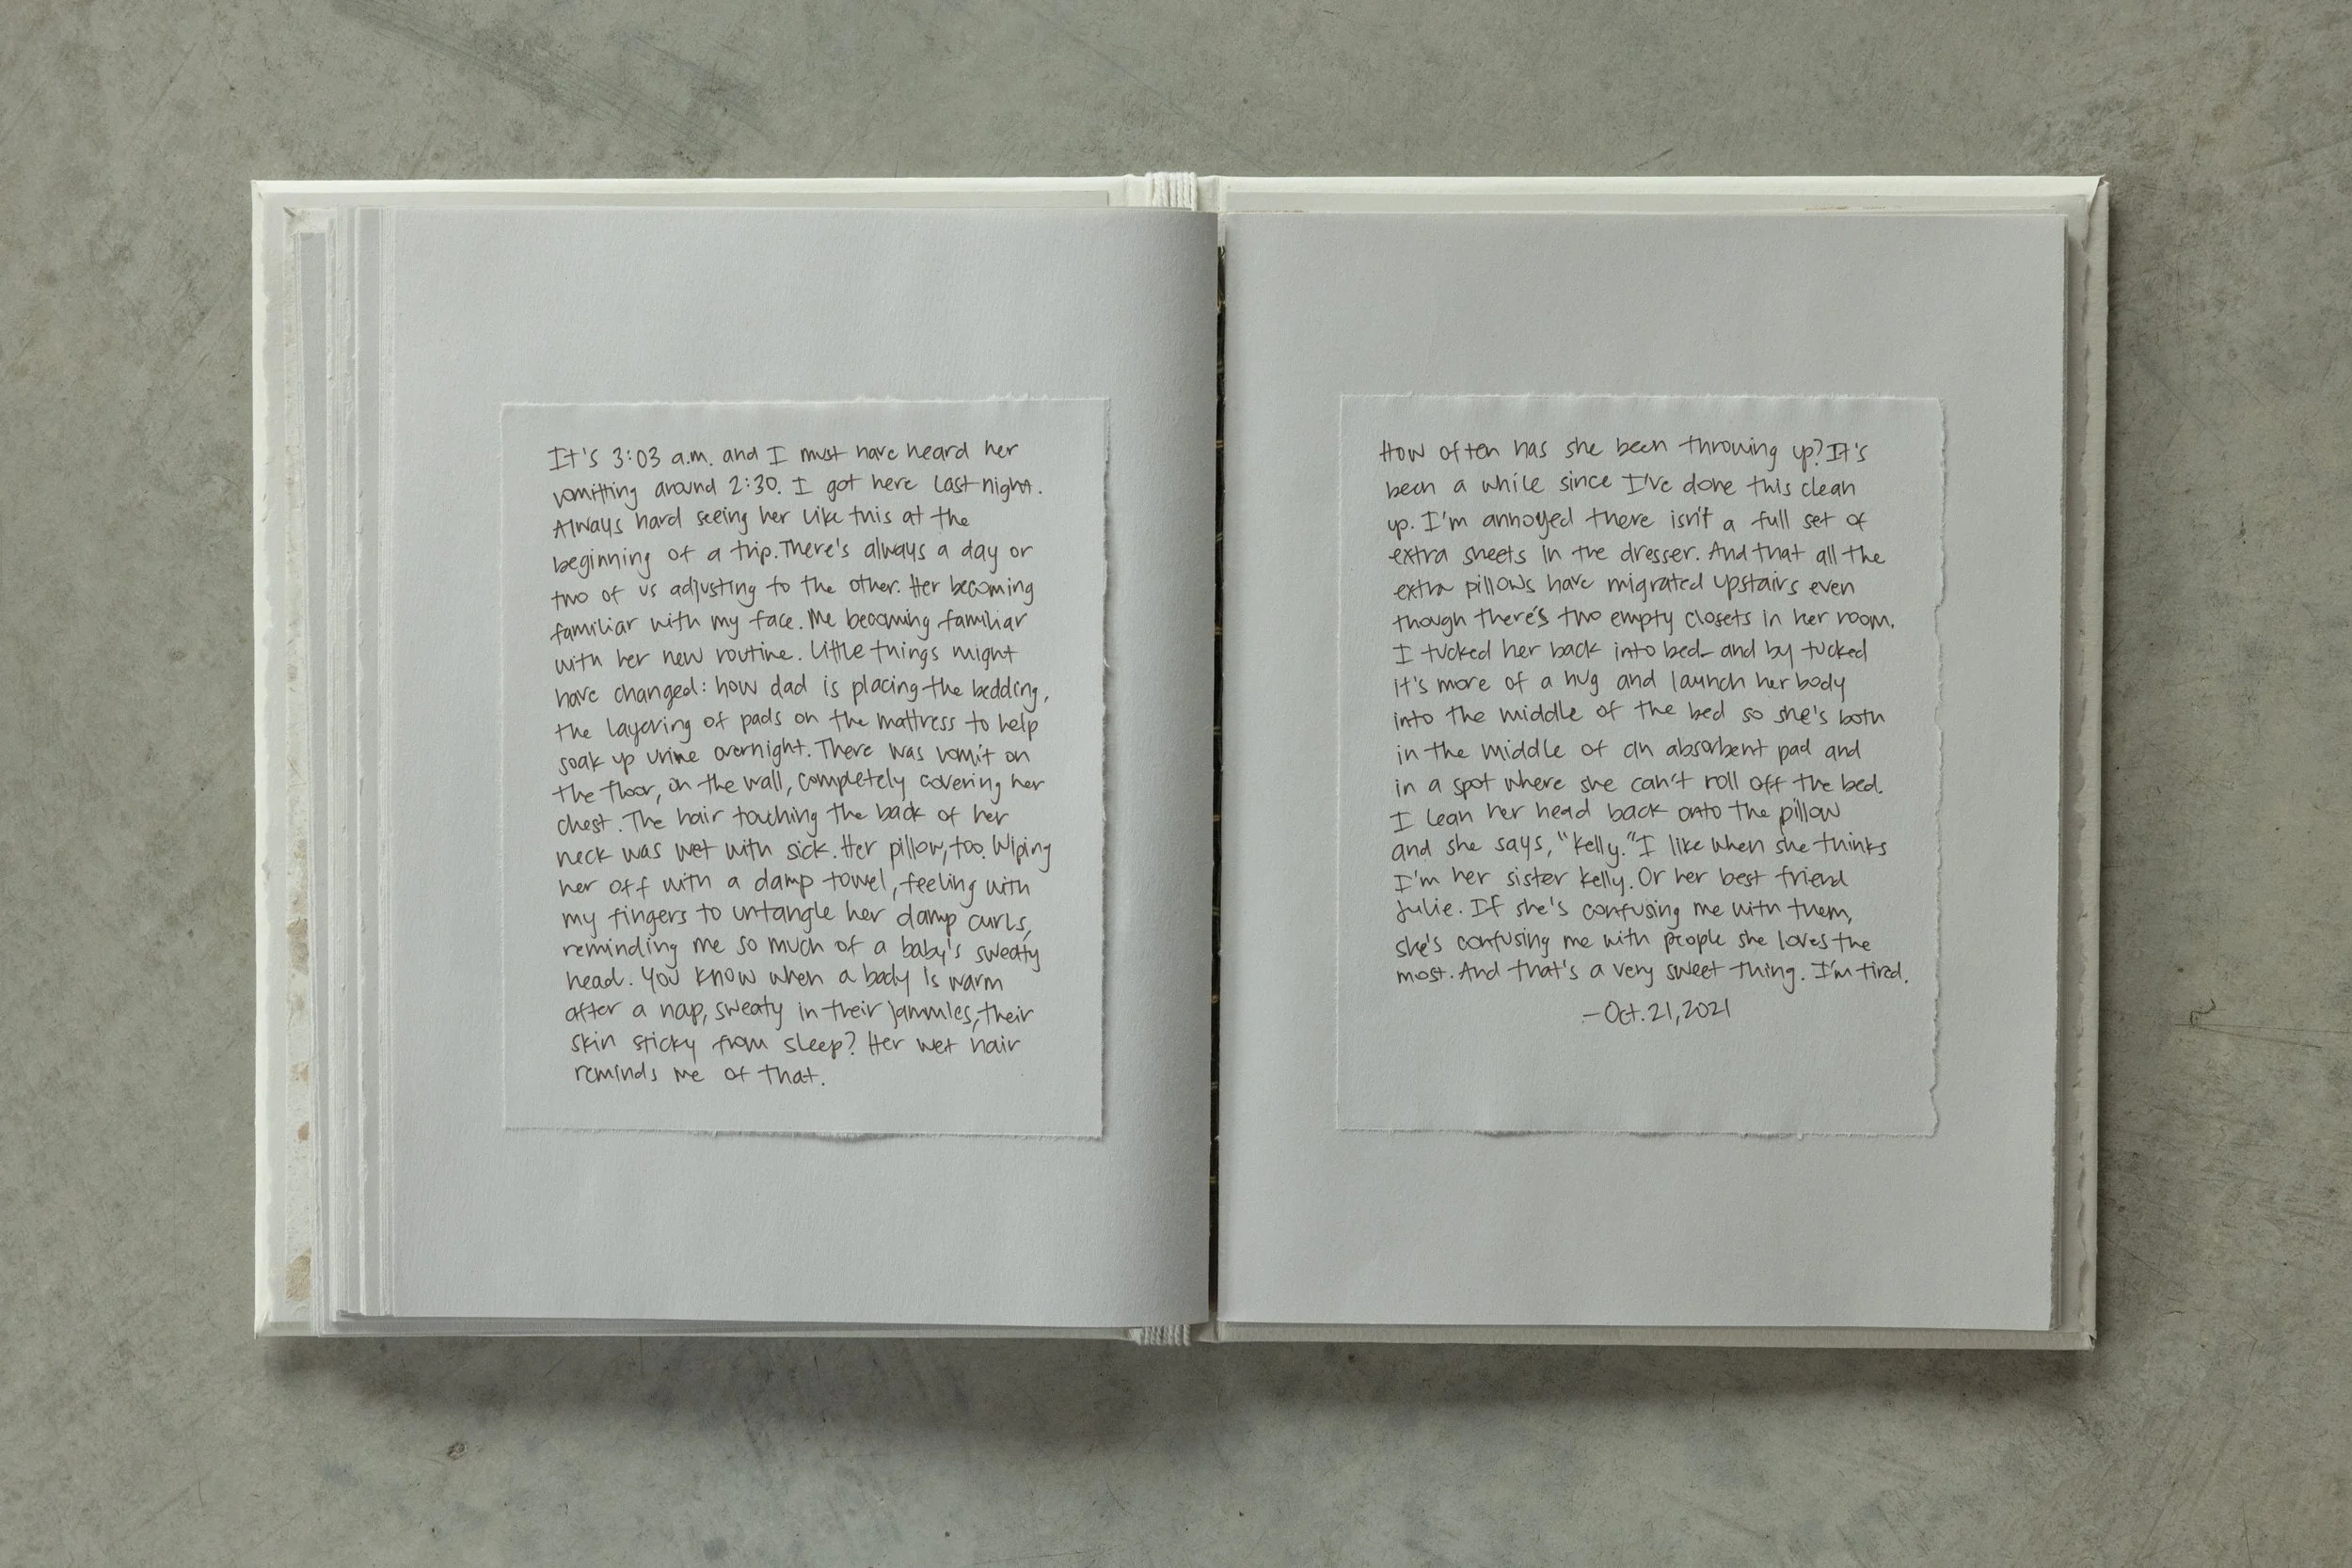 It's 3:03 a.m. and I must have heard her
vomitting around 2:30. I got here last night.
Always hard seeing her like this at the
beginning of a trip. There's always a day or
two of us adjusting to the other. Her becoming
familiar with my face. Me becoming familiar
with her new routine. Little things might
have changed: how dad is placing the bedding,
the layering of pads on the mattress to help
soak up urine overnight. There was vomit on
the floor, on the wall, completely covering her
chest. The hair touching the back of her
neck was wet with sick. Her pillow, too. Wiping
her off with a damp towel, feeling with
my fingers to untangle her damp curls,
reminding me so much of a baby's sweaty
head. You know when a body is warm
after a nap, sweaty in their jammies, their
skin sticky from sleep? Her wet hair
reminds me of that.
How often has she been throwing up? It's
been a while since I've done this clean
up. I'm annoyed there isn't a full set of
extra sheets in the dresser. And that all the
extra pillows have migrated upstairs even
though there's two empty closets in her room.
I tucked her back into bed - and by tucked
it's more of a hug and launch her body
into the middle of the bed so she's both
in the middle of an absorbent pad and
in a spot where she can't roll off the bed.
I lean her head back onto the pillow
and she says, "Kelly." I like when she thinks
I'm her sister Kelly. Or her best friend
Julie. If she's confusing me with them,
she's confusing me with people she loves the
most. And that's a very sweet thing. I'm tired.
—Oct. 21, 2021